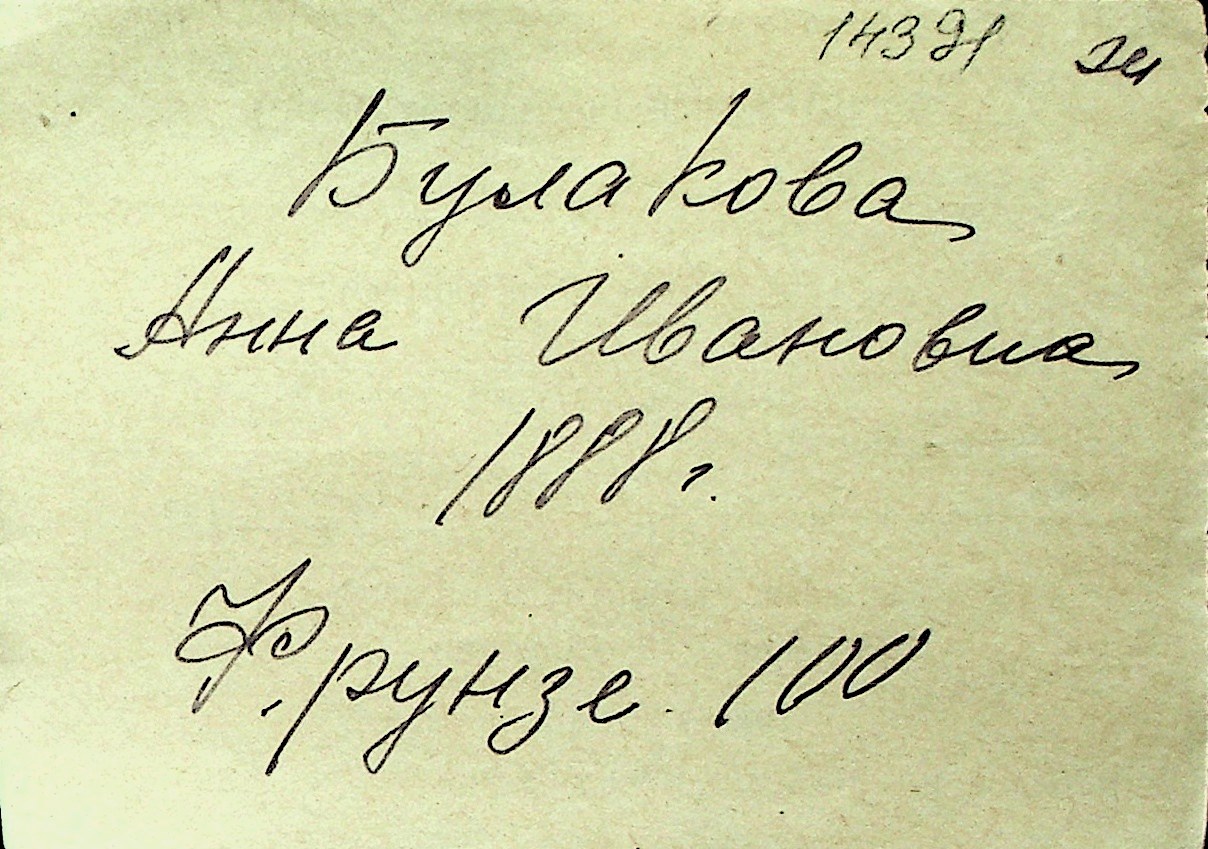 14391 зи
Булакова
Анна Ивановна
1888г.
Фрунзе 100